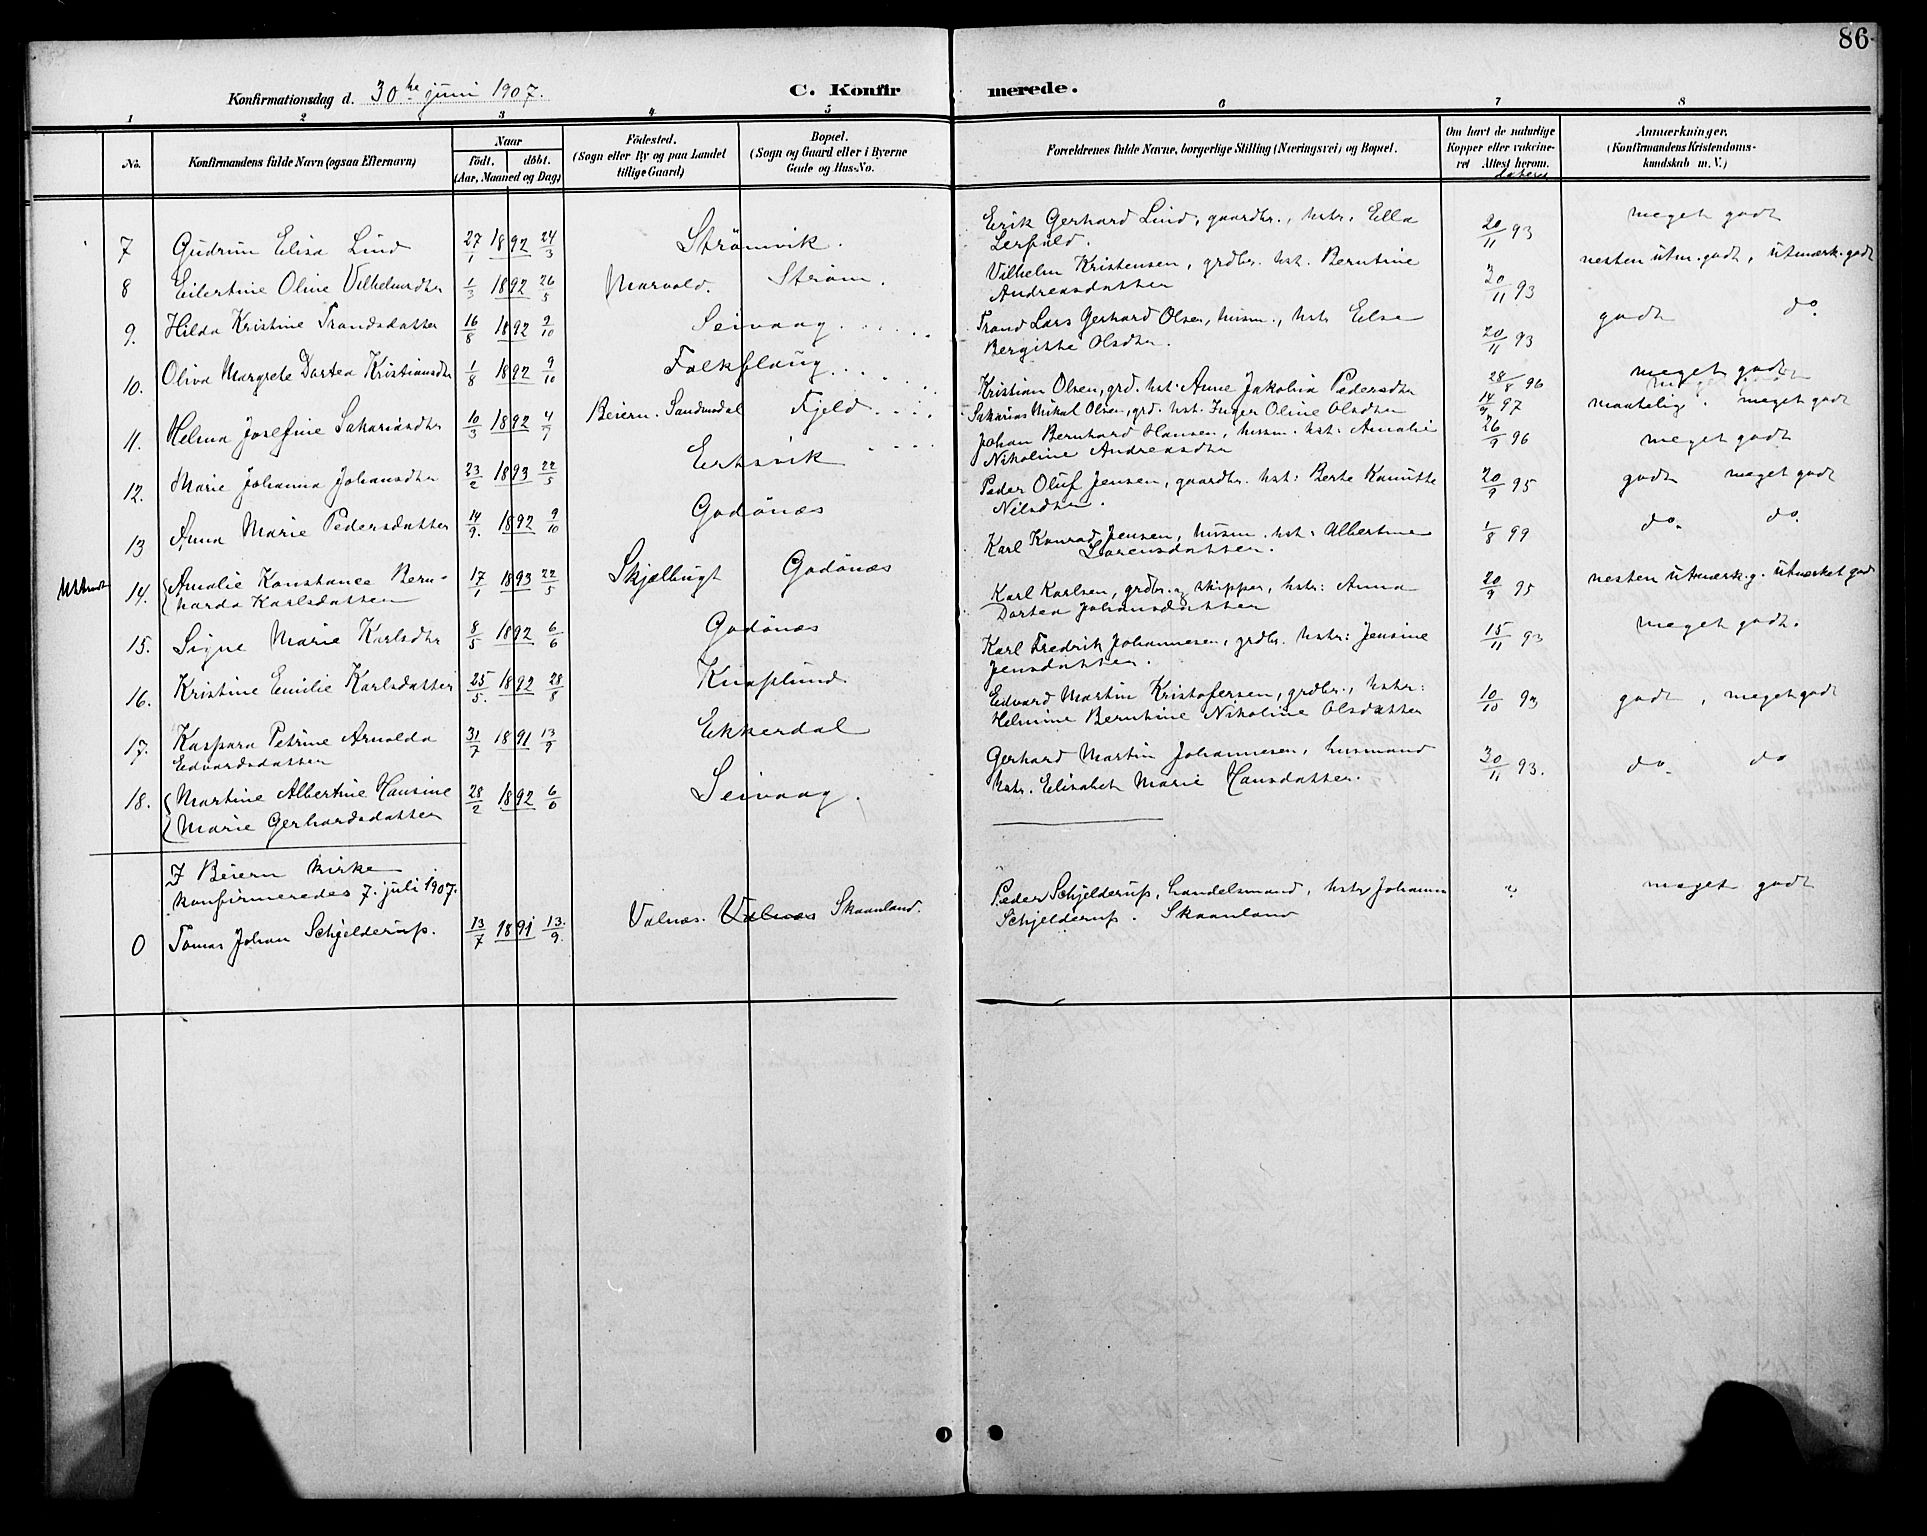 86
Konfirmationsdag d. 30te juni 1907.
C. Konfirmerede.
1 2 3 4 5 6 7 8
No.
Konfirmandens fulde Navn (ogsaa Efternavn)
Naar
födt. döbt.
(Aar, Maaned og Dag)
Födested.
(Sogn eller By og paa Landet
tillige Gaard)
Bopæl.
(Sogn og Gaard eller i Byerne
Gade og Hus-No.
Forældrenes fulde Navne, borgerlige Stilling (Næringsvei) og Bopæl.
Om havt de naturlige
Kopper eller vaksine-
ret Attest herom.
dateret
Anmærkninger.
(Konfirmandens Kristendoms-
kundskab m. V.)
7 Gudrun Elisa Lind 27/1 1892 24/3 Strömvik. Erik Gerhard Lind, gaardbr., hstr. Ella
Lerfald. 20/11 93 meget godt
8 Eilertine Oline Vilhelmsdtr 1/3 1892 26/5 Marvold. Ström. Vilhelm Kristensen, grdbr. hst. Berntine
Andreasdatter 20/11 93 nesten utm. godt, utmærk. godt
9. Hilda Kristine Trondsdatter 16/8 1892 9/10 Seivaag. Trond Lars Gerhard Olsen, husm., hstr Else
Bergitte Olsdtr. 20/11 93 godt do.
10. Oliva Margrete Dortea Kristiansdtr 1/8 1892 9/10 Falkflaug. Kristian Olsen, grd. hst. Anne Jakobia Pedersdtr 28/8 96 meget godt
11. Helma Josefine Sakariasdtr 10/3 1892 4/7 Beiern. Sandmdal Fjeld. Sakarias Mikal Olsen, grd. hst. Inger Oline Olsdtr 14/9 97 maatelig. meget godt
12. Marie Johanna Johansdtr 23/2 1893 22/5 Ertsvik Johan Bernhard Hansen, husm. hst. Amalie
Nikoline Andreasdtr 26/9 96 meget godt
13 Anna Marie Pedersdatter 14/9. 1892 9/10 Godönæs Peder Oluf Jensen, gaardbr. hst: Berte Kanutte
Nilsdtr. 20/9 95 godt meget godt
14. Amalie Konstance Bern-
harda Karlsdatter 17/1 1893 22/5 Skjælbugt Godönæs Karl Konrad Jensen, husm. hst: Albertine
Lorensdatter. 1/8 99 do. do.
15. Signe Marie Karlsdtr 8/5 1892 6/6 Godönæs Karl Karlsen, grdbr. og skipper, hstr: Anna
Dortea Johansdatter 20/9 95 nesten utmærk. g. utmærket godt
16. Kristine Emilie Karlsdatter 25/5. 1892 28/8 Knaplund Karl Fredrik Johannesen, grdbr. hstr: Jensine
Jensdatter. 15/11 93 meget godt.
17. Kaspara Petrine Arnolda
Edvardsdatter 31/7 1891 13/9 Ekkerdal Edvard Martin Kristofersen, grdbr., hstr:
Helmine Berntine Nikoline Olsdatter 10/10 93 godt, meget godt
18. Martine Albertine Hansine
Marie Gerhardsdatter 28/2 1892 6/6 Seivaag. Gerhard Martin Johannesen, husmand
hstr. Elisabet Marie Hansdatter. 30/11 93. do. do
I Beiern kirke
konfirmeredes 7. juli 1907.
0 Tomas Johan Schjelderup. 13/7 1891 13./9. Valnæs. Valnæs Skaanland. Peder Schjelderup, handelsmand, hstr Johanna
Schjelderup. Skaanland " meget godt